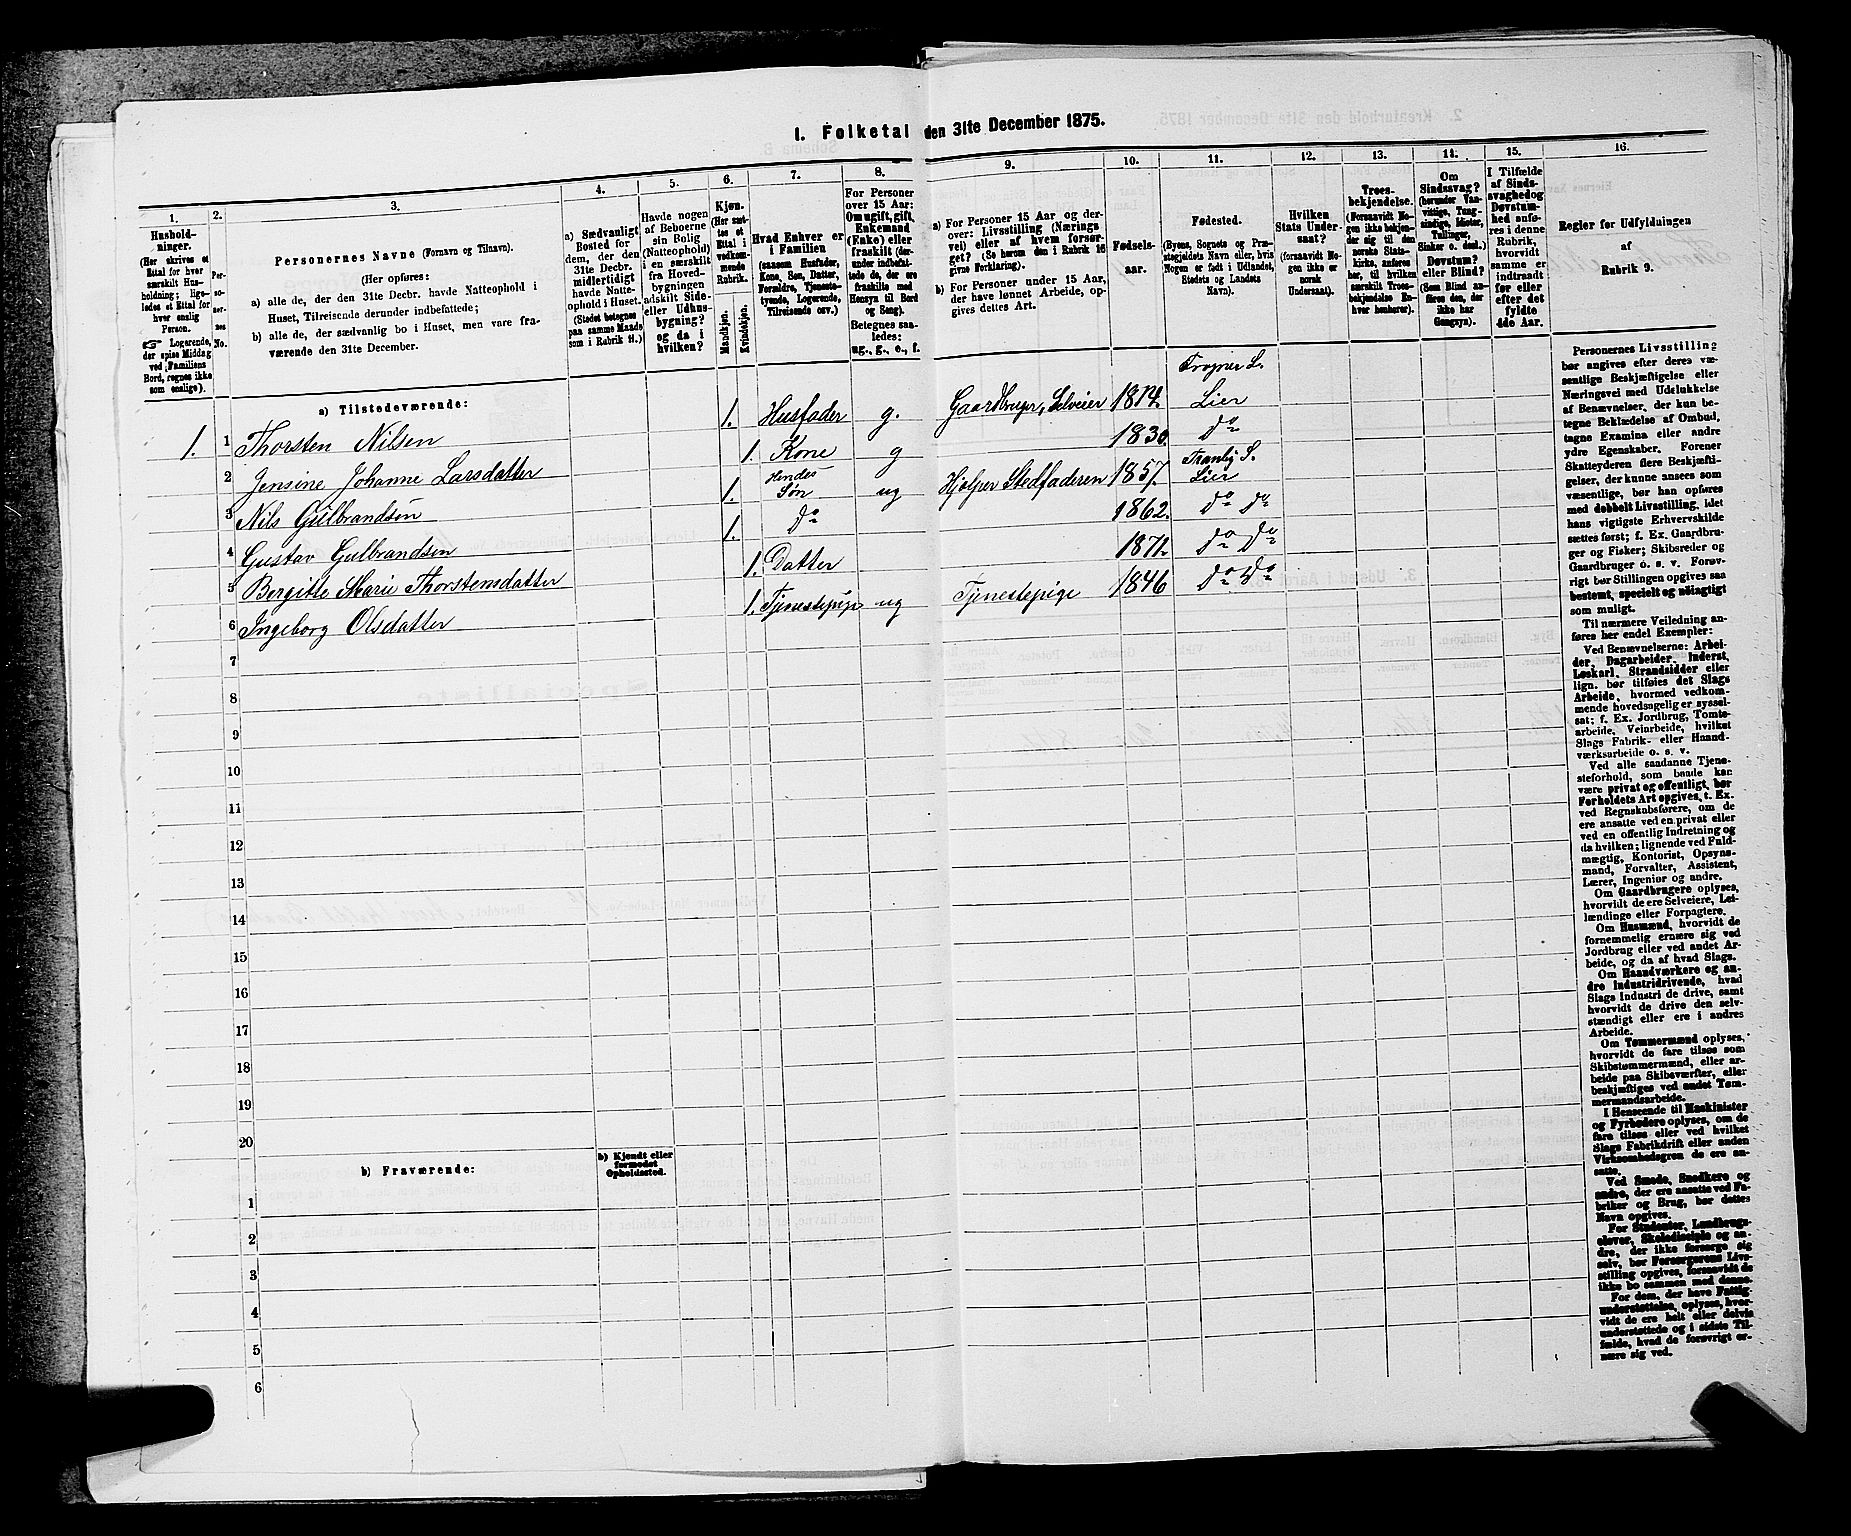 1. Folketal den 31te December 1875.
1. 2. 3. 4. 5. 6. 7. 8. 9. 10. 11. 12. 13. 14. 15. 16.
Hushold-
ninger.
(Her skrives et
Ettal for hver
særskilt Hus-
holdning; lige-
ledes et Ettal for
hver enslig
Person.
☞ Logerende,
der spise Middag
ved Familiens
Bord, regnes ikke
som enslige).
Per-
so-
ner-
nes
No.
Personernes Navne (Fornavn og Tilnavn).
(Her opføres:
a) alle de, der den 31te Decbr. havde Natteophold i
Huset, Tilreisende derunder indbefattede;
b) alle de, der sædvanlig bo i Huset, men vare fra-
værende den 31te December.
a) Sædvanligt
Bosted for
dem, der den
31te Decbr.
midlertidigt
havde Natte-
ophold i Huset.
(Stedet betegnes
paa samme Maade
som i Rubrik 11.)
Havde nogen
af Beboerne
sin Bolig
(Natteophold)
i en særskilt
fra Hoved-
bygningen
adskilt Side-
eller Udhus-
bygning?
og da i
hvilken?
Kjøn.
(Her sæt-
tes et
Ettal i
vedkom-
mende
Rubrik.
Mandkjøn.
Kvindekjøn.
Hvad Enhver er
i Familien
(saasom Husfader,
Kone, Søn, Datter,
Forældre, Tjeneste-
tyende, Logerende,
Tilreisende osv.)
For Personer
over 15 Aar:
Om ugift, gift,
Enkemand
(Enke) eller
fraskilt (der-
under indbefat-
tede de, der ere
fraskilte med
Hensyn til Bord
og Seng).
Betegnes saa-
ledes:
ug., g., e., f.
a) For Personer 15 Aar og der-
over: Livsstilling (Nærings
vei) eller af hvem forsør-
get? (Se herom den i Rubrik 16
givne Forklaring).
b) For Personer under 15 Aar,
der have lønnet Arbeide, op-
gives dettes Art.
Fødsels-
aar.
Fødested.
(Byens, Sognets og Præ-
stegjeldets Navn eller, hvis
Nogen er født i Udlandet,
Stedets og Landets
Navn).
Hvilken
Stats Under-
saat?
(forsaavidt No-
gen ikke er
norsk
Undersaat).
Troes-
bekjendelse.
(Forsaavidt No-
gen ikke bekjen-
der sig til den
norske Stats-
kirke, anføres
her, til hvilken
særskilt Troes-
bekjendelse En-
hver henhører).
Om
Sindssvag?
(herunder Van-
vittige, Tung-
sindige, Idioter,
Tullinger,
Sinker o. desl.)
Døvstum?
eller Blind?
(Som Blind an-
føres den, der
ikke har
Gangsyn).
I Tilfælde
af Sinds-
svaghed og
Døvstum-
hed anfø-
res i denne
Rubrik,
hvorvidt
samme er
indtraadt
før eller
efter det
fyldte
4de Aar.
Regler for Udfyldningen
af
Rubrik 9.
a) Tilstedeværende:
1. 1 Thorsten Nilsen 1. Husfader g. Gaardbruger, Selveier 1814. Lier
2 Jensine Johanne Larsdatter 1. Kone g 1830. Do
3 Nils Gulbrandsen 1. Hendes Søn ug Hjelper Stedfaderen 1857. Tranby S. Lier
4 Gustav Gulbrandsen 1. Do 1862. Do Do
5 Bergitte Marie Thorstensdatter 1. Datter 1871. Do Do
6 Ingeborg Olsdatter 1. Tjenestepige ug Tjenestepige 1846 Do Do
7
8
9
10
11
12
13
14
15
16
17
18
19
20
b) Fraværende:
b) Kjendt eller
formodet
Opholdssted.
1
2
3
4
5
6
Personernes Livsstilling
bør angives efter deres væ-
sentlige Beskjæftigelse eller
Næringsvei med Udelukkelse
af Benævnelser, der kun be-
tegne Beklædelse af Ombud,
tagne Examina eller andre
ydre Egenskaber. Forener
Skatteyderen flere Beskjæfti-
gelser, der kunne ansees som
væsentlige, bør han opføres
med dobbelt Livsstilling, idet
hans vigtigste Erhvervskilde
sættes først; f. Ex. Gaardbru-
ger og Fisker; Skibsreder og
Gaardbruger o. s. v. Forøv-
rigt bør Stillingen opgives saa
bestemt, specielt og nöiagtigt
som muligt.
Til nærmere Veiledning an-
føres her endel Exempler:
Ved Benævnelserne: Arbei-
der, Dagarbeider, Inderst,
Løskarl, Strandsidder eller
lign. bør tilføies det Slags
Arbeide, hvormed vedkom-
mende hovedsagelig er syssel-
sat; f. Ex. Jordbrug, Tomte-
arbeide, Veiarbeide, hvilket
Slags Fabrik- eller Haand-
værksarbeide o. s. v.
Ved alle saadanne Tjene-
steforhold, som baade kan
være privat og offentligt, bør
Forholdets Art opgives, t. Ex.
ved Regnskabsførere, om de
ere ansatte ved en privat eller
ved en offentlig Indretning og
da hvilken; lignende ved Fuld-
mægtig, Kontorist, Opsyns-
mand, Forvalter, Assistent,
Lærer, Ingeniør og andre.
Om Gaardbrugere oplyses,
hvorvidt de ere Selveiere, Lei-
lændinge eller Forpagtere.
Om Husmænd, hvorvidt de
fornemmelig ernære sig ved
Jordbrug eller ved andet Ar-
beide, og da af hvad Slags.
Om Haandværkere og an-
dre Industridrivende, hvad
Slags Industri de drive, samt
hvorvidt de drive den selv-
stændigt eller ere i andres
Arbeide.
Om Tømmermænd oplyses,
hvorvidt de fare tilsøs som
Skibstømmermænd, eller ar-
beide paa Skibsværfter, eller
beskjæftiges ved andet Tøm-
mermandsarbeide.
I Henseende til Maskinister
og Fyrbødere oplyses, om de
fare tilsøs eller ved hvilket
Slags Fabrikdrift eller anden
Virksomhedsgren de ere an-
satte.
Ved Smede, Snedkere og
andre, der ere ansatte ved Fa-
briker og Brug, bør dettes
Navn opgives.
For Studenter, Landbrugs-
elever, Skoledisciple og an-
dre, der ikke forsørge sig
selv, bør Forsørgerens Livs-
stilling opgives, forsaavidt de
ikke bo sammen med denne.
For dem, der have Fattig-
understøttelse, oplyses, hvor-
vidt de ere helt eller delvis
understøttede og i sidste Til-
fælde, hvad de forøvrigt er-
nære sig ved.